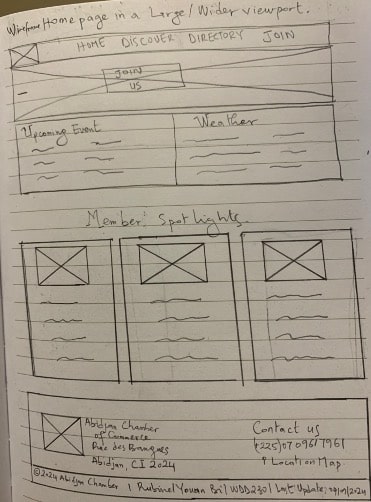 Wireframe Home page in a Large/Wider viewport.
HOME DISCOVER DIRECTORY JOIN
JOIN
US
Upcoming Event
Weather
Member Spotlights
Abidjan Chamber
of Commerce
Rue des
Abidjan, CI 2024
Contact us
(225)0709617961
Location Map.
©2024 Abidjan Chamber | WDD230 | Last Update: